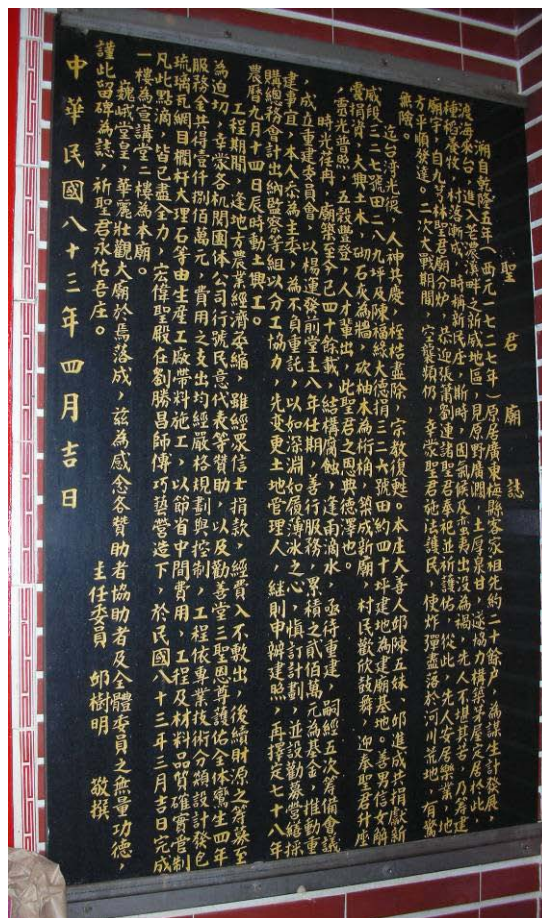 聖君廟誌
溯自乾隆五年(西元一七二七年)原居廣東梅縣客家祖先約二十餘戶,為謀生計發展,
渡海來台,進入荖濃溪畔之新威地區,見原野廣濶,土厚泉甘,遂協力構築茅屋定居於此,
種稻養牧,村落漸成,時稱新民庄,斯時,因氣候及蛮夷出沒為禍,先人不堪其苦,乃籌建
廟宇,自九芎林聖君廟分炉,恭迎張蕭劉連諸聖君奉祀並祈護佑,從此,先人安居樂業,地
方平順發達。二次大戰期間,空襲頻仍,幸蒙聖君施法護民,使炸彈盡落於河川荒地,有驚
無險。
迄台湾光復,人神共慶,桎梏盡除,宗教復甦。本庄大善人邱陳五妹、邱進成共捐獻新
威段三二七號田二八九坪及陳福綠大德捐三二六號田約四十坪建地為建廟基地。善男信女解
囊捐資,大興土木,砌石灰為牆,砍柚木為桁桷,築成新廟,村民歡欣鼓舞,迎奉聖君升座
,靈光普照,五穀豐登,人才輩出,此聖君之恩典德澤也。
時光荏苒,廟築至今已四十餘載,結構腐蝕,逢雨滴水,亟待重建,嗣經五次籌備會議
,成立重建委員會,以楊運發前堂主八年任期,善行服務,累積之貳佰萬元為基金,推動重
建事宜,本人忝為主委,為不負重託,以如深淵如履薄冰之心,慎訂計劃,並設勸募營繕採
購總務會計出納監察等組以分工協力,先变更土地管理人,継則申辦建照,再擇定七十八年
農曆九月十四日辰時動土興工。
工程期間,逢地方農業經濟萎縮,雖經眾信士捐款,經費入不敷出,後續財源之籌募至
為迫切,幸蒙各机関團体公司行號民意代表等贊助,以及勸善堂三聖恩尊護佑全体鸞生四年
服務金共得壹仟捌佰萬元,費用之支出均經嚴格規劃與控制,工程依專業技術分類設計發包
琉璃瓦網目欄杆大理石等由生產工廠帶料施工,以節省中間費用,工程及材料品質確實管制
凡此點滴,皆已盡全力,宏偉聖殿在劉勝昌師傅巧藝營造下,於民國八十三年三月吉日完成
一樓為宣講堂二樓為本廟。
巍峨堂皇,華麗壯觀大廟於焉落成,茲為感念各贊助者協助者及全體委員之無量功德,
謹此留碑為誌,祈聖君永佑吾庄。
主任委員 邱樹明 敬撰
中華民國八十三年四月吉日